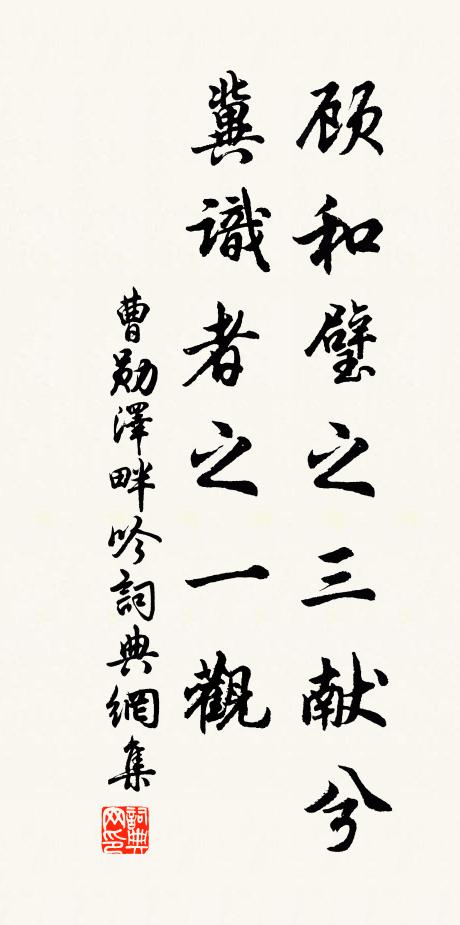 顾和璧之三献兮
冀識者之一觀
曹勛澤畔吟詞典網集
詞典网印